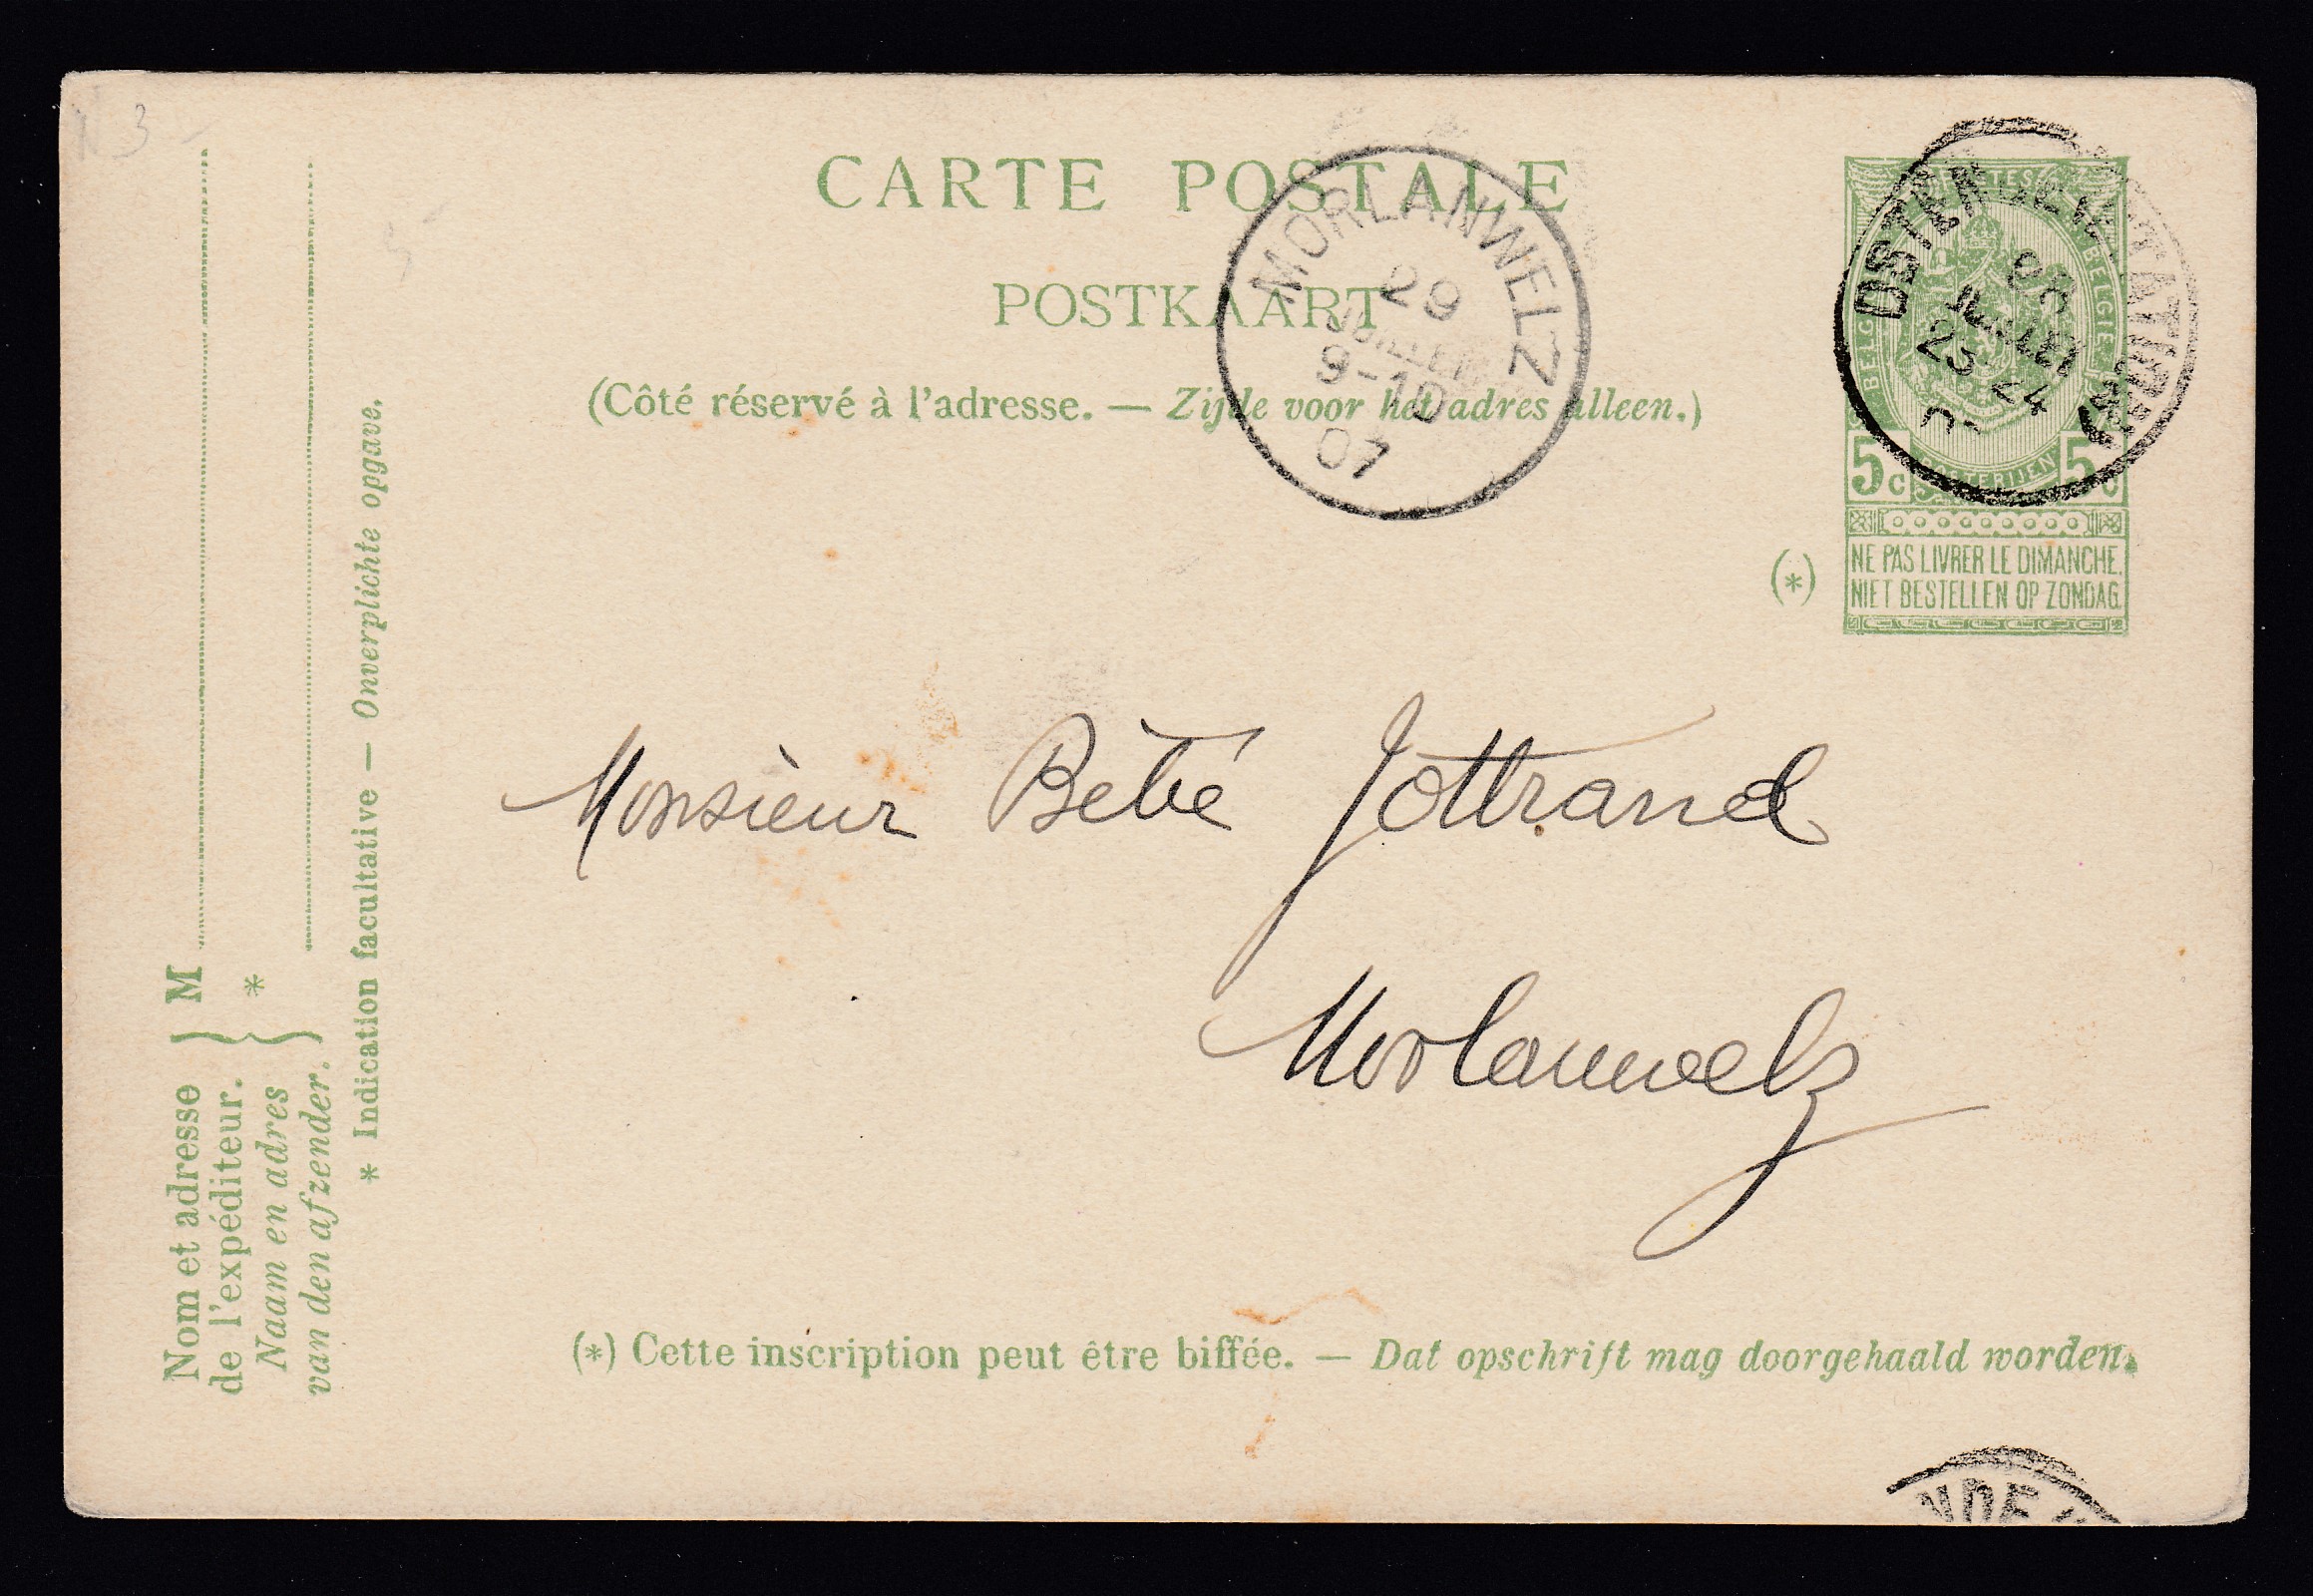 N 3
CARTE POSTALE
POSTKAART
(Côté réservé à l'adresse. — Zijde voor het adres alleen.)
MORLANWELZ
29
JUILLET
9-10
07
OSTENDE
JUILLET
23-24
POSTES
BELGIE
POSTERIJEN
5 c 5 c
(*)
NE PAS LIVRER LE DIMANCHE.
NIET BESTELLEN OP ZONDAG.
Monsieur Bébé Jottrand
Morlanwelz
(*) Cette inscription peut être biffée. — Dat opschrift mag doorgehaald worden.
NDE
Nom et adresse
de l'expéditeur.
Naam en adres
van den afzender.
M
*
* Indication facultative — Onverplichte opgave.